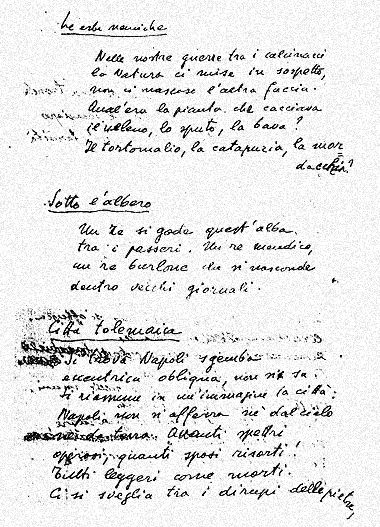 Le erbe nemiche
Nelle nostre guerre tra i calcinacci
la Natura ci mise in sospetto,
non ci nascose l'altra faccia.
Qual'era la pianta che cacciava
il veleno, lo sputo, la bava?
Il tortomalio, la catapuzia, la mor=
dacchia?
Sotto l'albero
Un re si gode quest'alba
tra i passeri. Un re mendico,
un re burlone che si nasconde
dentro vecchi giornali.
Città tolemaica
Si trova Napoli sgemba
eccentrica obliqua, non si sa.
Si riassume in un'immagine la città:
Napoli non si afferra né dal cielo
né da terra. Quanti spettri
operosi, quanti sposi risorti!
Tutti leggeri come morti.
Ci si sveglia tra i dirupi delle pietre,